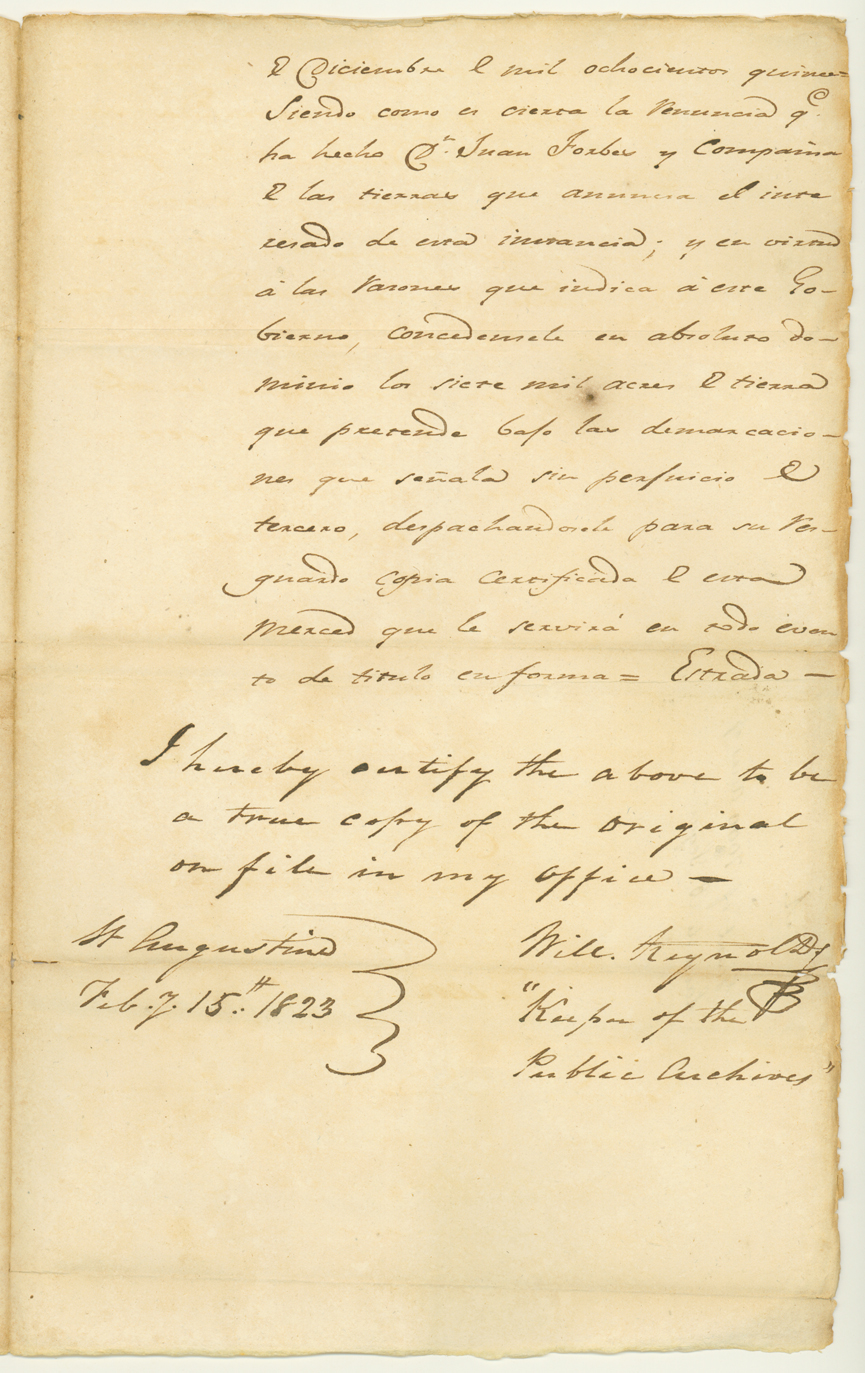 de Diciembre de mil ochocientos quince=
Siendo como es cierta la Renuncia q.e
ha hecho Dn. Juan Forbes y Compañia
de las tierras que anuncia el inte
resado de esta instancia; y en virtud
á las Razones que indica á este Go-
bierno, concedensele en absoluto do-
minio los siete mil acres de tierra
que pretende bajo las demarcacio-
nes que señala sin perjuicio de
tercero, despachandosele para su Res-
guardo copia certificada de esta
Merced que le servirá en todo even
to de titulo en forma = Estrada -
I hereby certify the above to be
a true copy of the original
on file in my office -
St Augustine
Feb.y. 15.th 1823
Will. Reynolds
"Keeper of the
Public Archives"